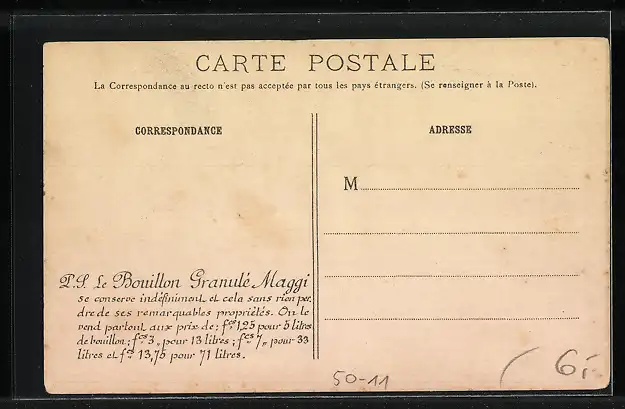 CARTE POSTALE
La Correspondance au recto n'est pas acceptée par tous les pays étrangers. (Se renseigner à la Poste).
CORRESPONDANCE
ADRESSE
M
P.S. Le Bouillon Granulé Maggi
se conserve indéfiniment et cela sans rien per
dre de ses remarquables propriétés. On le
vend partout aux prix de: fcs 1,25 pour 5 litres
de bouillon; fcs 3,, pour 13 litres; fcs 7,, pour 33
litres et fcs 13,75 pour 71 litres.
50-11